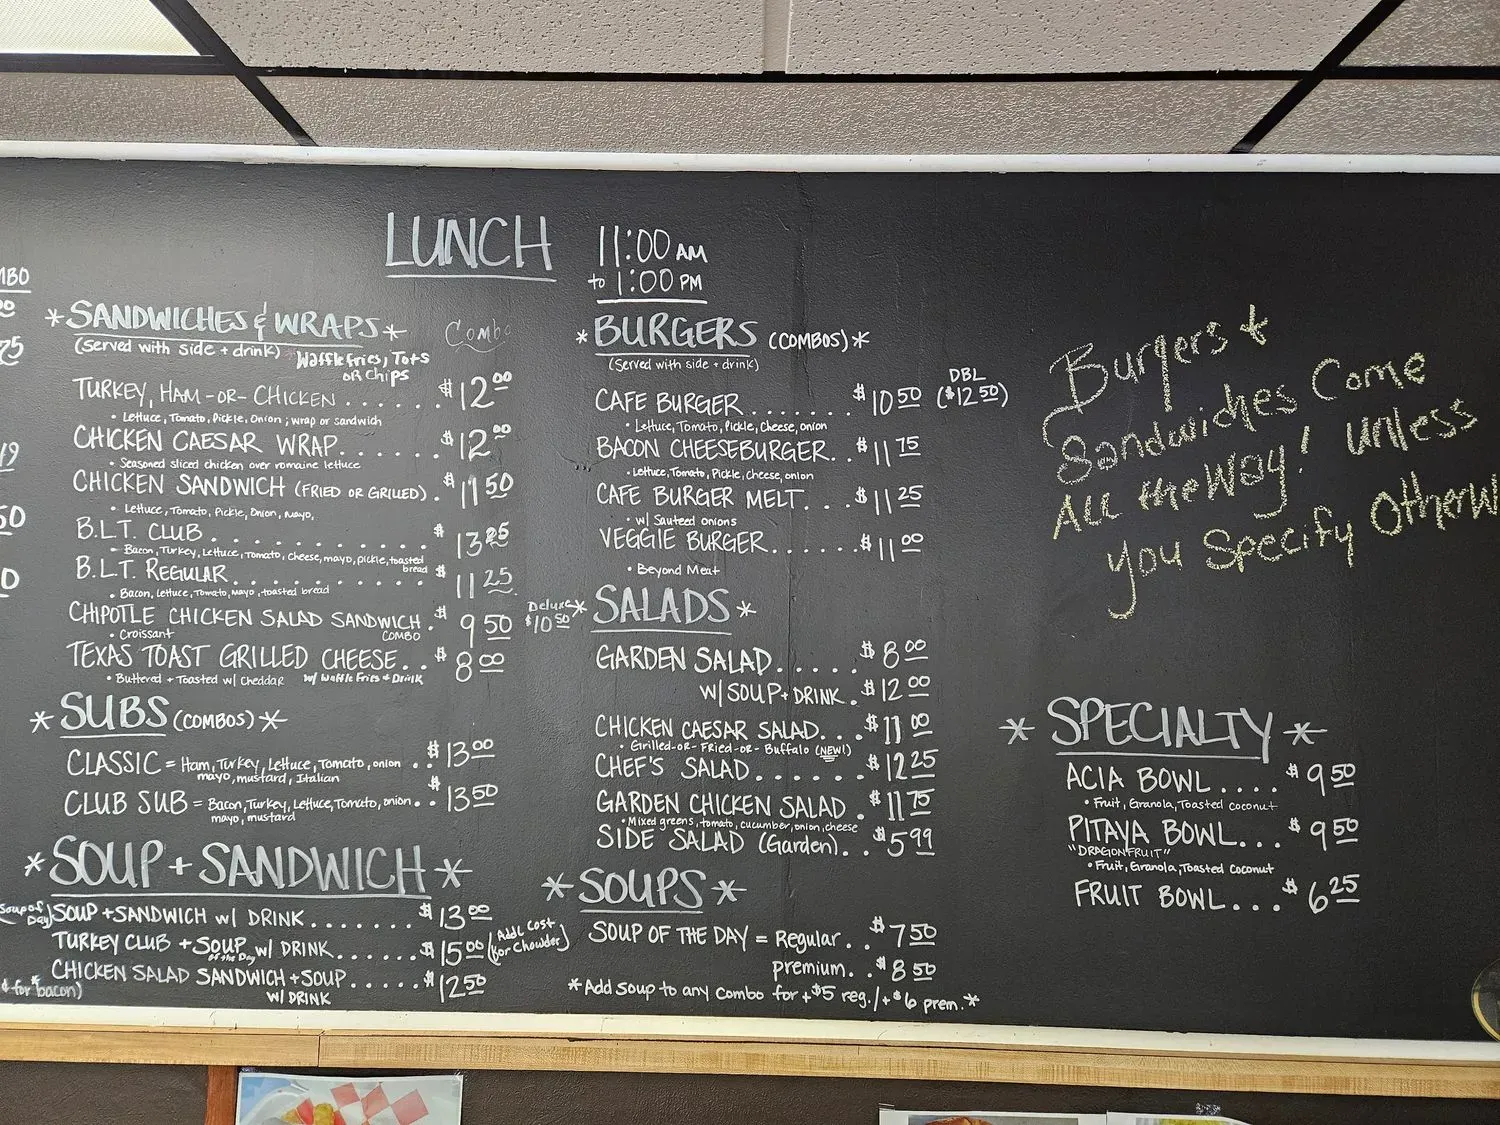 LUNCH 11:00 AM
to 1:00 PM
MBO
00
75
19
50
* SANDWICHES & WRAPS * Combo
(Served with side + drink) Waffle fries, Tots
OR Chips
TURKEY, HAM -OR- CHICKEN ...... $12 00
• Lettuce, Tomato, Pickle, Onion ; wrap or sandwich
CHICKEN CAESAR WRAP...... $12 00
• Seasoned sliced chicken over romaine lettuce
CHICKEN SANDWICH (FRIED OR GRILLED). $11 50
• Lettuce, Tomato, Pickle, Onion, mayo,
B.L.T. CLUB ............ $13 25
- Bacon, Turkey, Lettuce, Tomato, cheese, mayo, pickle, toasted
bread
B.L.T. REGULAR........... $11 25
• Bacon, Lettuce, Tomato, mayo, toasted bread
CHIPOTLE CHICKEN SALAD SANDWICH . $9 50 Deluxe
$10 50
• Croissant COMBO
TEXAS TOAST GRILLED CHEESE... $8 00
• Buttered + Toasted w/ Cheddar w/ Waffle Fries + Drink
* SUBS (COMBOS) *
CLASSIC = Ham, Turkey, Lettuce, Tomato, onion .. $13 00
mayo, mustard, Italian
CLUB SUB = Bacon, Turkey, Lettuce, Tomato, onion.. $13 50
mayo, mustard
* SOUP + SANDWICH *
(Soup of Day) SOUP + SANDWICH w/ DRINK ....... $13 00
TURKEY CLUB + SOUP of the Day w/ DRINK ...... $15 00 (Add. Cost
for Chowder)
CHICKEN SALAD SANDWICH + SOUP ..... $12 50
W/ DRINK
for bacon)
* BURGERS (COMBOS) *
(Served with side + drink)
CAFE BURGER ........ $10 50 DBL
($12 50)
• Lettuce, Tomato, Pickle, Cheese, onion
BACON CHEESEBURGER.. $11 75
• Lettuce, Tomato, Pickle, cheese, onion
CAFE BURGER MELT... $11 25
• w/ Sauteed onions
VEGGIE BURGER...... $11 00
• Beyond Meat
* SALADS *
GARDEN SALAD ..... $8 00
W/ SOUP + DRINK. $12 00
CHICKEN CAESAR SALAD... $11 00
• Grilled -OR- Fried -OR- Buffalo (NEW!)
CHEF'S SALAD ...... $12 25
GARDEN CHICKEN SALAD . $11 75
• Mixed greens, tomato, cucumber, onion, cheese
SIDE SALAD (Garden).. $5 99
* SOUPS *
SOUP OF THE DAY = Regular .. $7 50
premium.. $8 50
* Add soup to any combo for +$5 reg. / +$6 prem. *
Burgers +
Sandwiches Come
All the Way! Unless
You Specify Otherw
* SPECIALTY *
ACIA BOWL .... $9 50
• Fruit, Granola, Toasted coconut
PITAYA BOWL... $9 50
"DRAGONFRUIT"
• Fruit, Granola, Toasted Coconut
FRUIT BOWL... $6 25